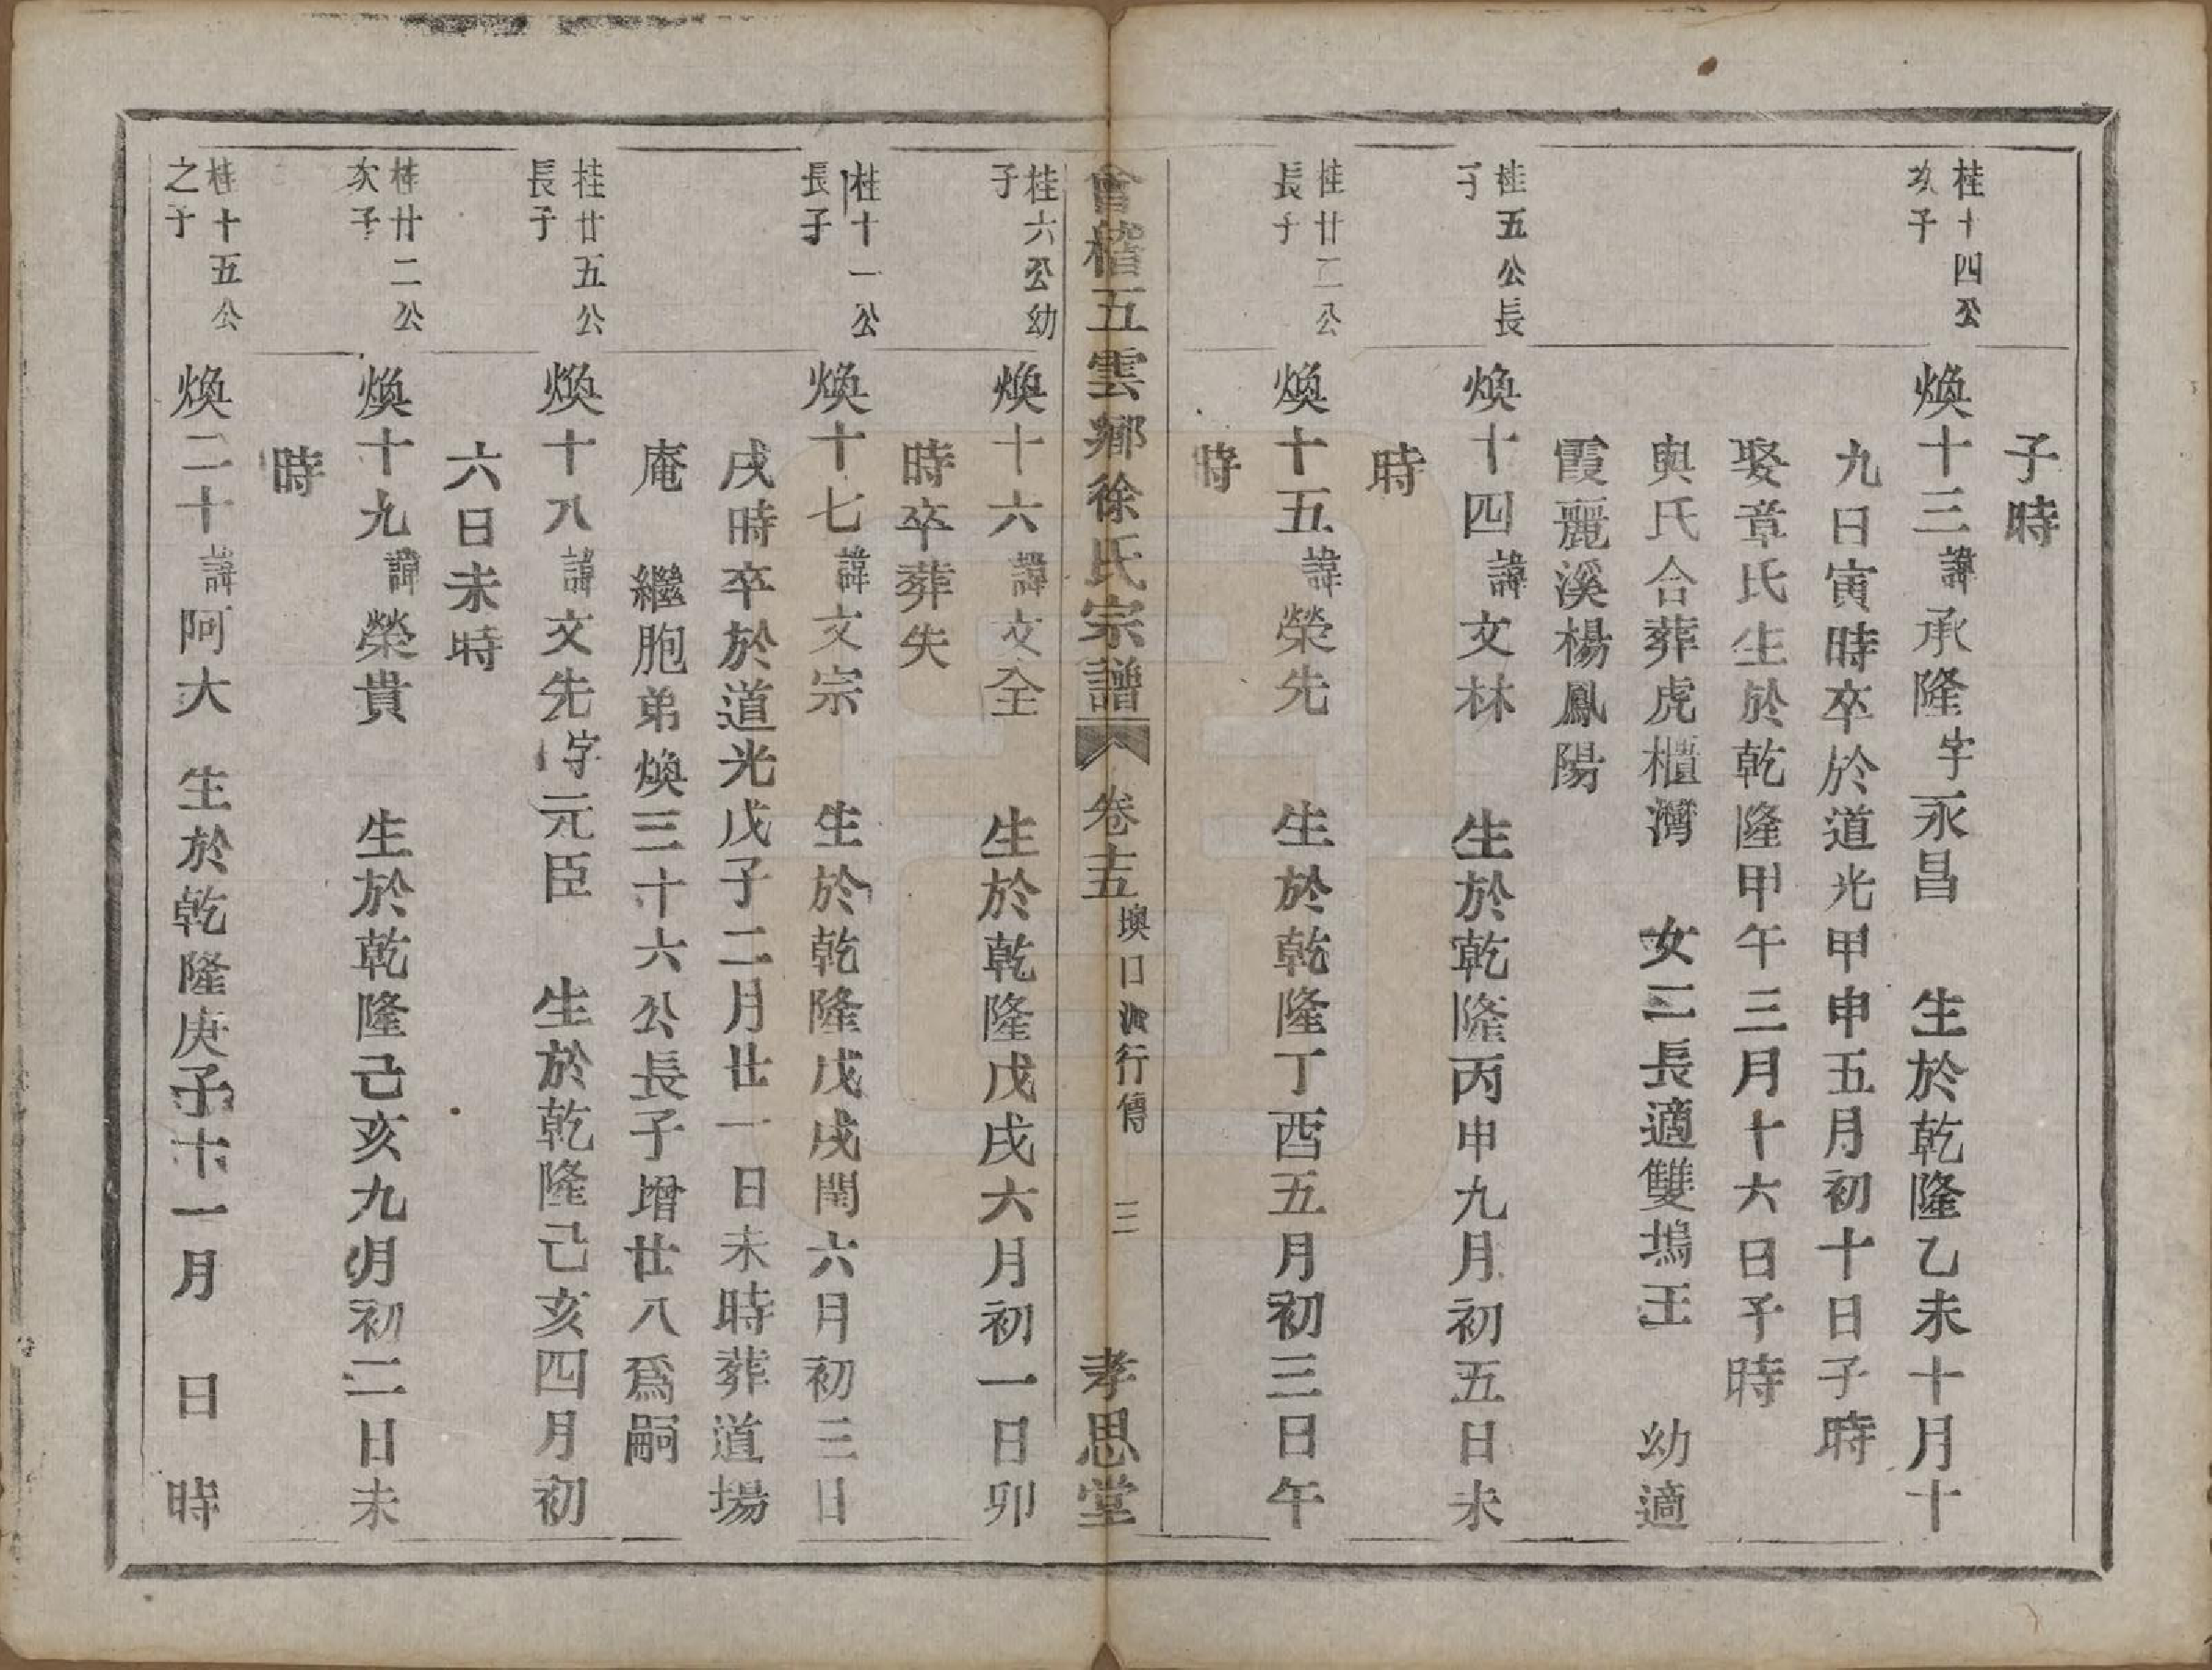 子時
桂十四公
次子
煥十三諱承隆字永昌　生於乾隆乙未十月十
九日寅時卒於道光甲申五月初十日子時
娶章氏生於乾隆甲午三月十六日子時
與氏合葬虎櫃灣　女二長適雙塢王　幼適
霞麗溪楊鳳陽
桂五公長
子
煥十四諱文林　生於乾隆丙申九月初五日未
時
桂廿二公
長子
煥十五諱榮先　生於乾隆丁酉五月初三日午
時
會稽五雲鄉徐氏宗譜　卷十五　墺口派行傳　三　孝思堂
桂六公幼
子
煥十六諱文全　生於乾隆戊戌六月初一日卯
時卒葬失
桂十一公
長子
煥十七諱文宗　生於乾隆戊戌閏六月初三日
戌時卒於道光戊子二月廿一日未時葬道場
庵　繼胞弟煥三十六公長子增廿八爲嗣
桂廿五公
長子
煥十八諱文先字元臣　生於乾隆己亥四月初
六日未時
桂廿二公
次子
煥十九諱榮貴　生於乾隆己亥九月初二日未
時
桂十五公
之子
煥二十諱阿大　生於乾隆庚子十一月　日　時